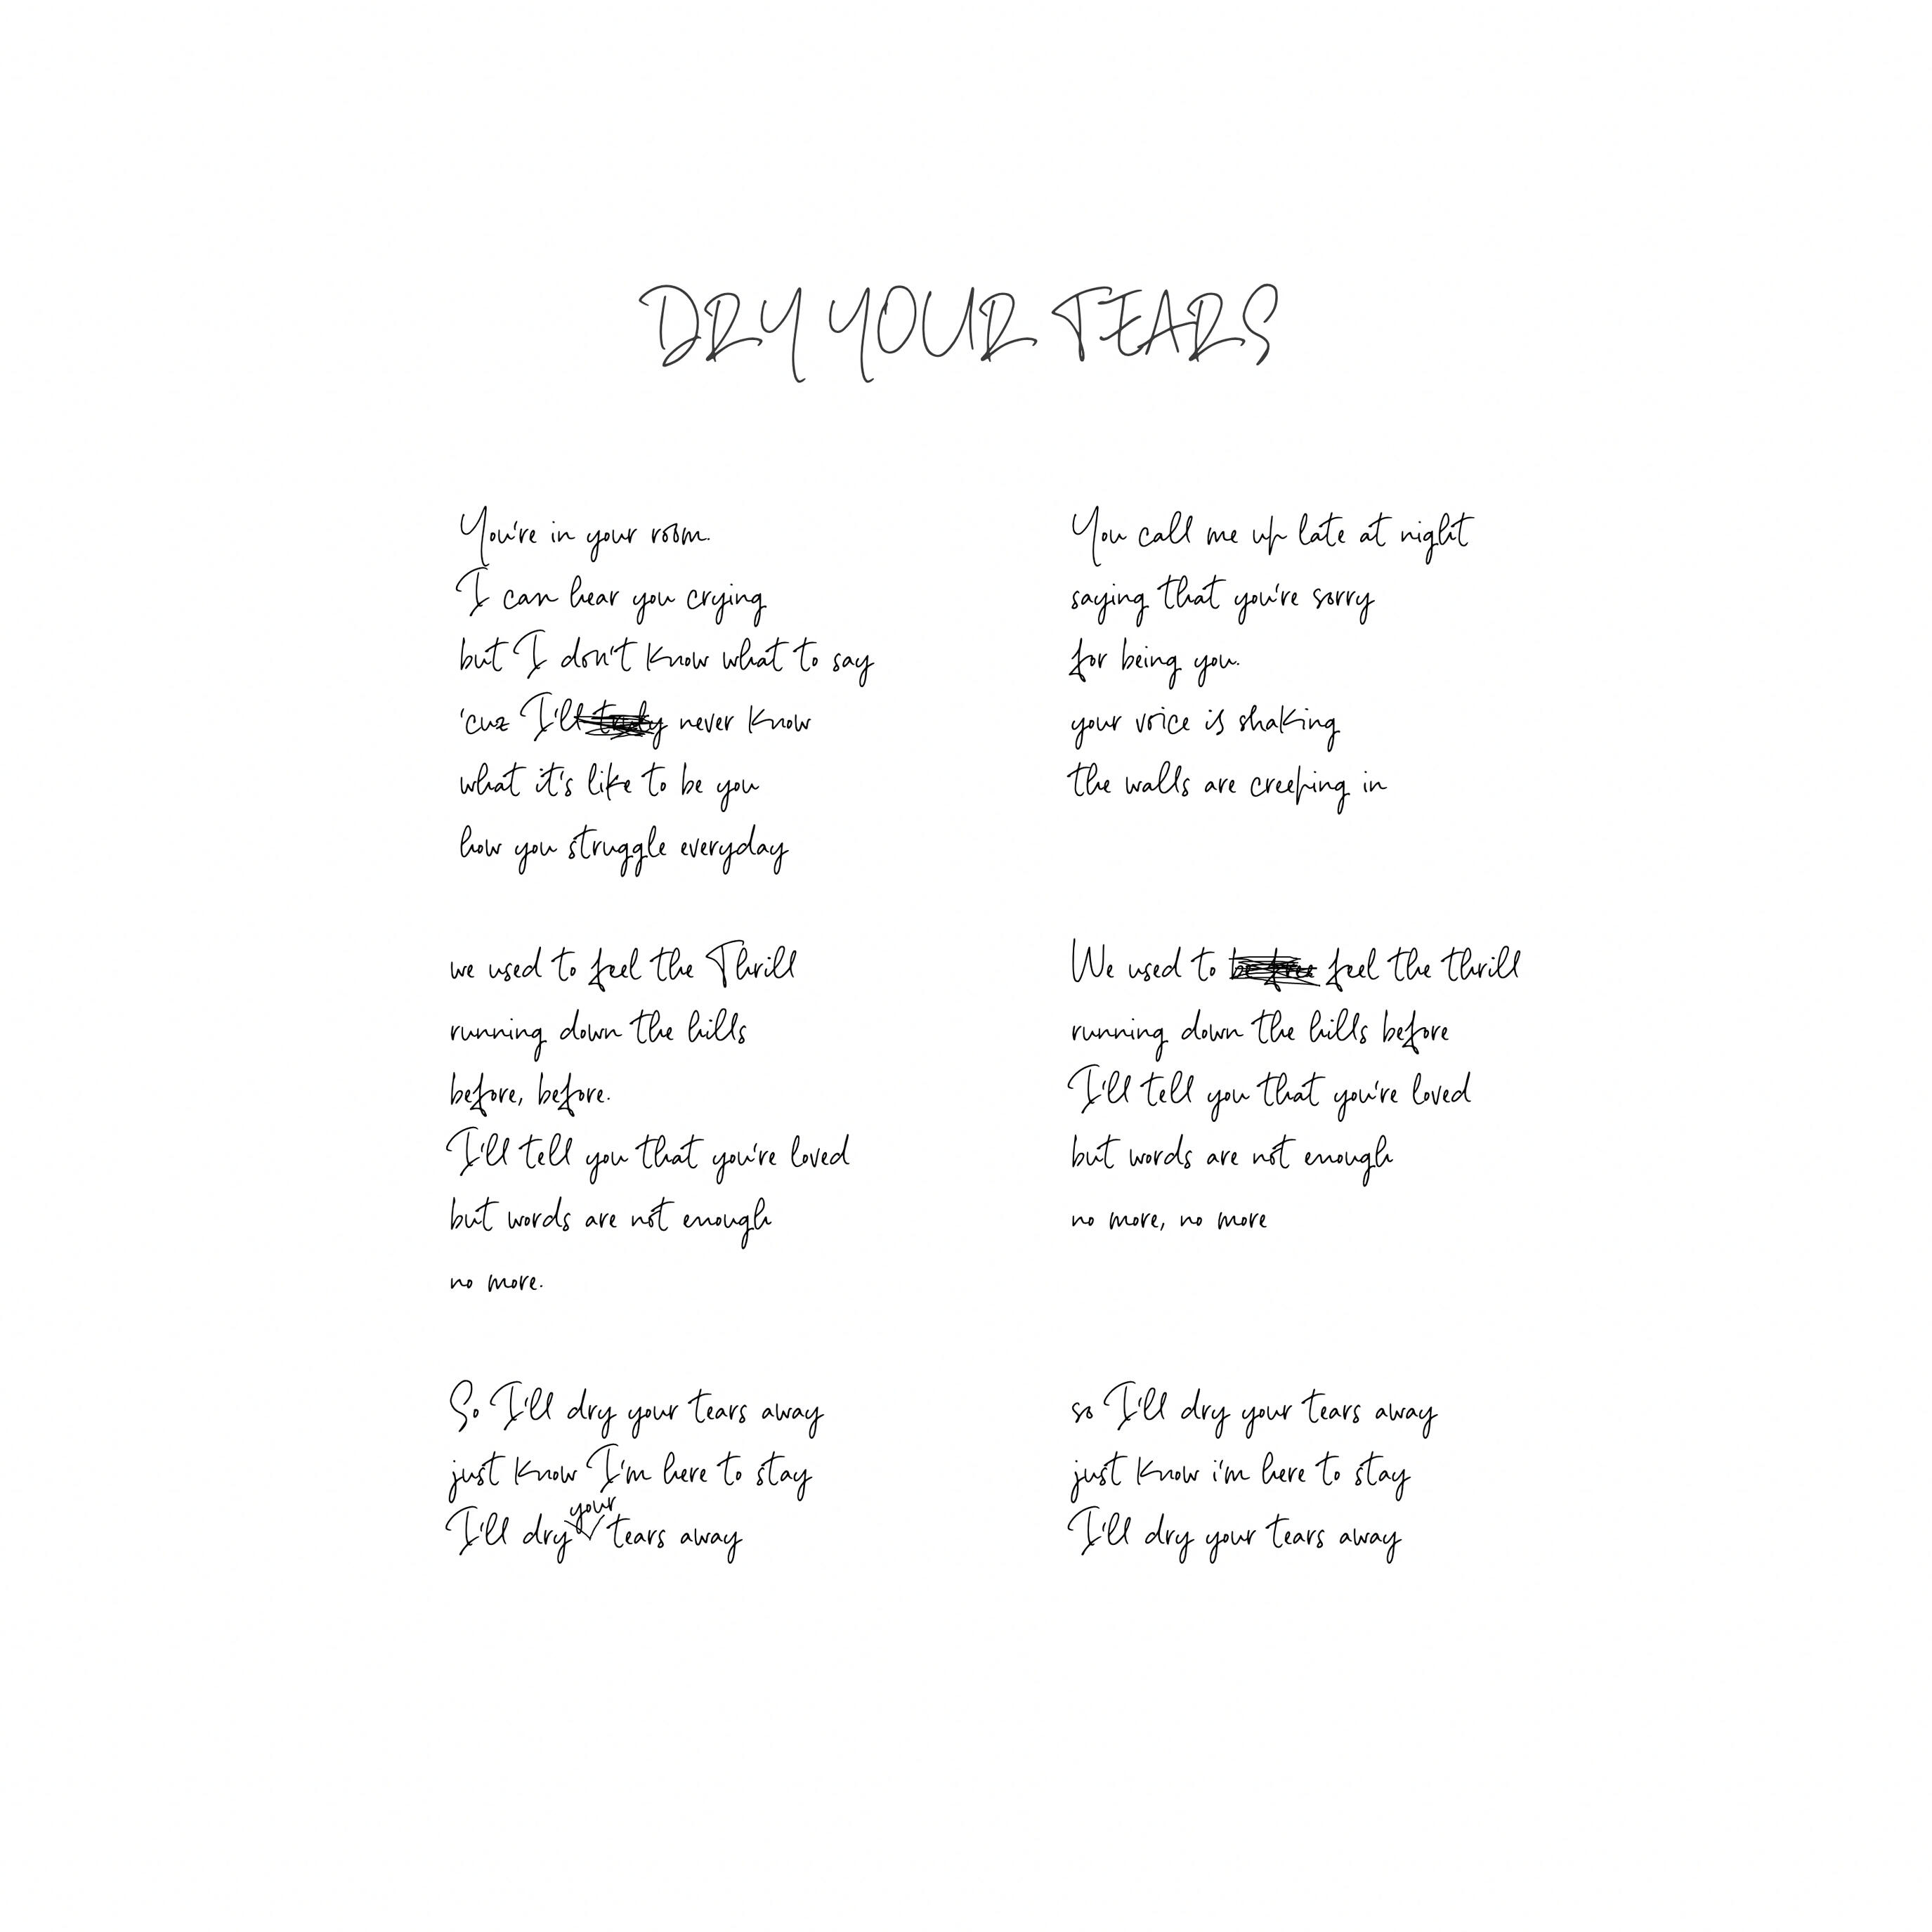 DRY YOUR TEARS
You're in your room.
I can hear you crying
but I don't know what to say
'cuz I'll truly never know
what it's like to be you
how you struggle everyday
we used to feel the Thrill
running down the hills
before, before.
I'll tell you that you're loved
but words are not enough
no more.
So I'll dry your tears away
just know I'm here to stay
I'll dry your tears away
You call me up late at night
saying that you're sorry
for being you.
your voice is shaking
the walls are creeping in
We used to be free feel the thrill
running down the hills before
I'll tell you that you're loved
but words are not enough
no more, no more
so I'll dry your tears away
just know i'm here to stay
I'll dry your tears away